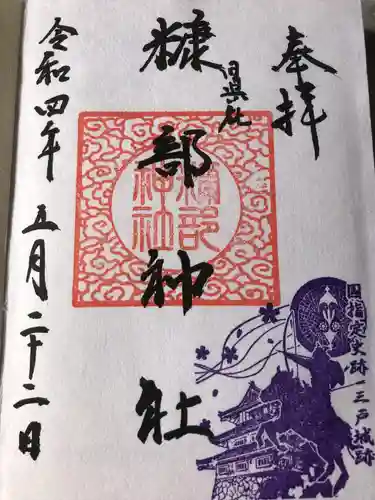 奉拝
旧県社
糠部神社
糠部神社
令和四年 五月二十二日
国指定史跡 三戸城跡